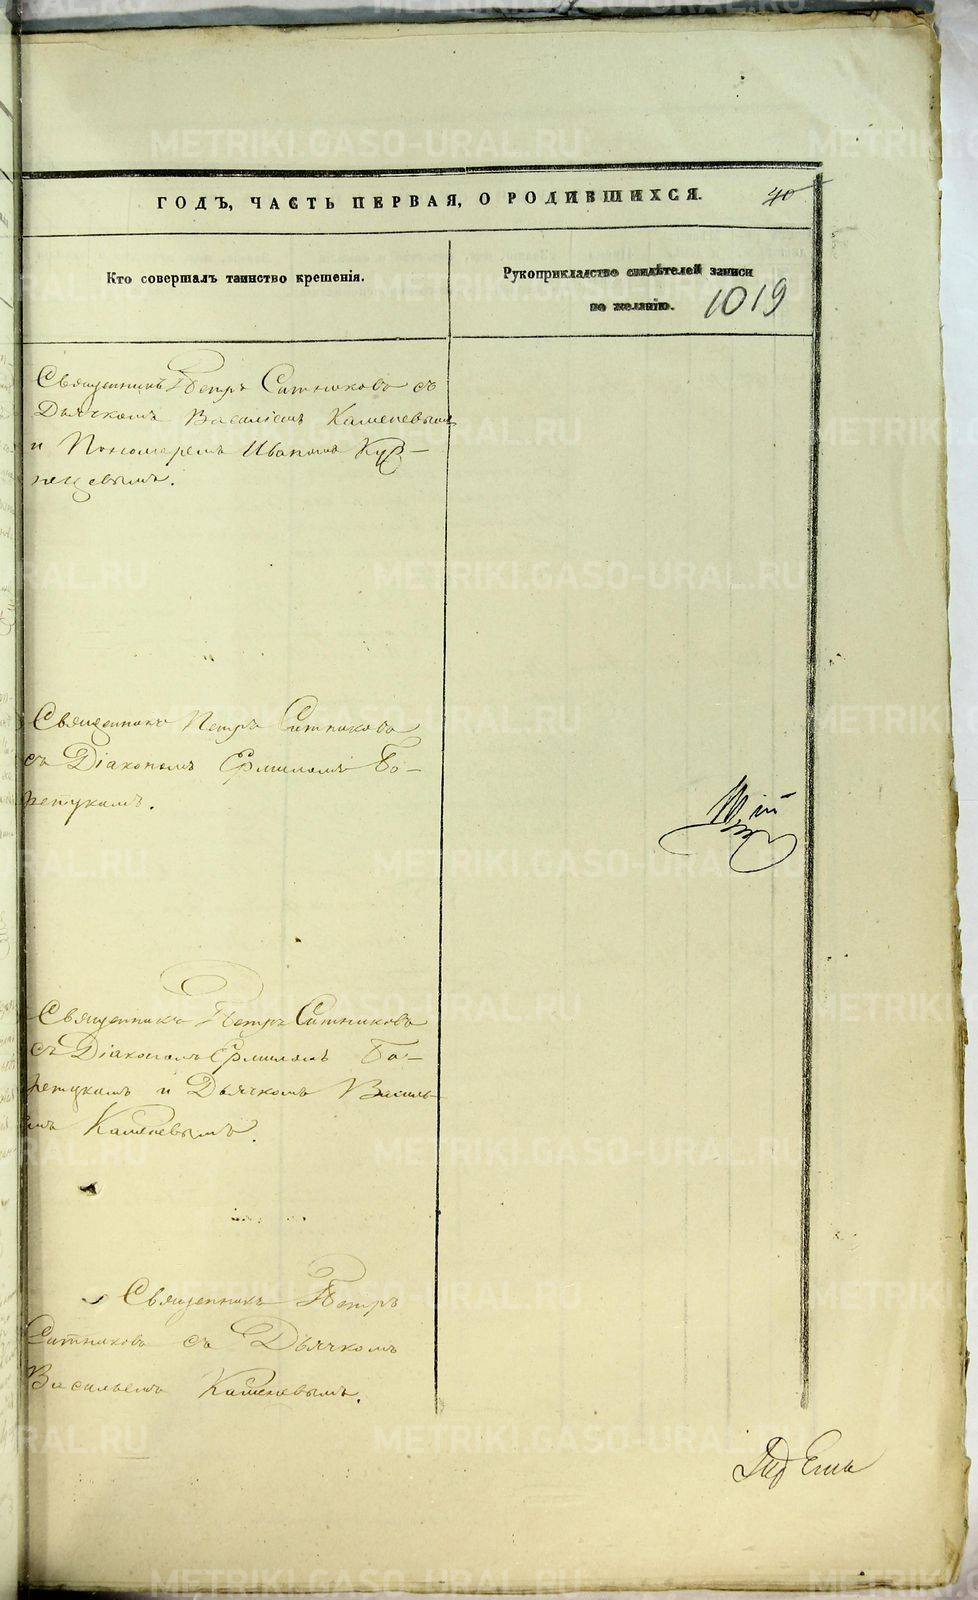 ГОДЪ, ЧАСТЬ ПЕРВАЯ, О РОДИВШИХСЯ. 40
Кто совершалъ таинство крещенія.
Рукоприкладство свидѣтелей записи
по желанію. 1019
Священникъ Петръ Ситниковъ съ
Дьячкомъ Василіемъ Каменевымъ
и Пономаремъ Иваномъ Куз-
нецовымъ.
Священникъ Петръ Ситниковъ
съ Діакономъ Ермиломъ Бо-
рецкимъ.
Священникъ Петръ Ситниковъ
съ Діакономъ Ермиломъ Бо-
рецкимъ и Дьячкомъ Василь
мъ Каменевымъ.
Священникъ Петръ
Ситниковъ съ Дьячкомъ
Васильемъ Каменевымъ.
METRIKI.GASO-URAL.RU